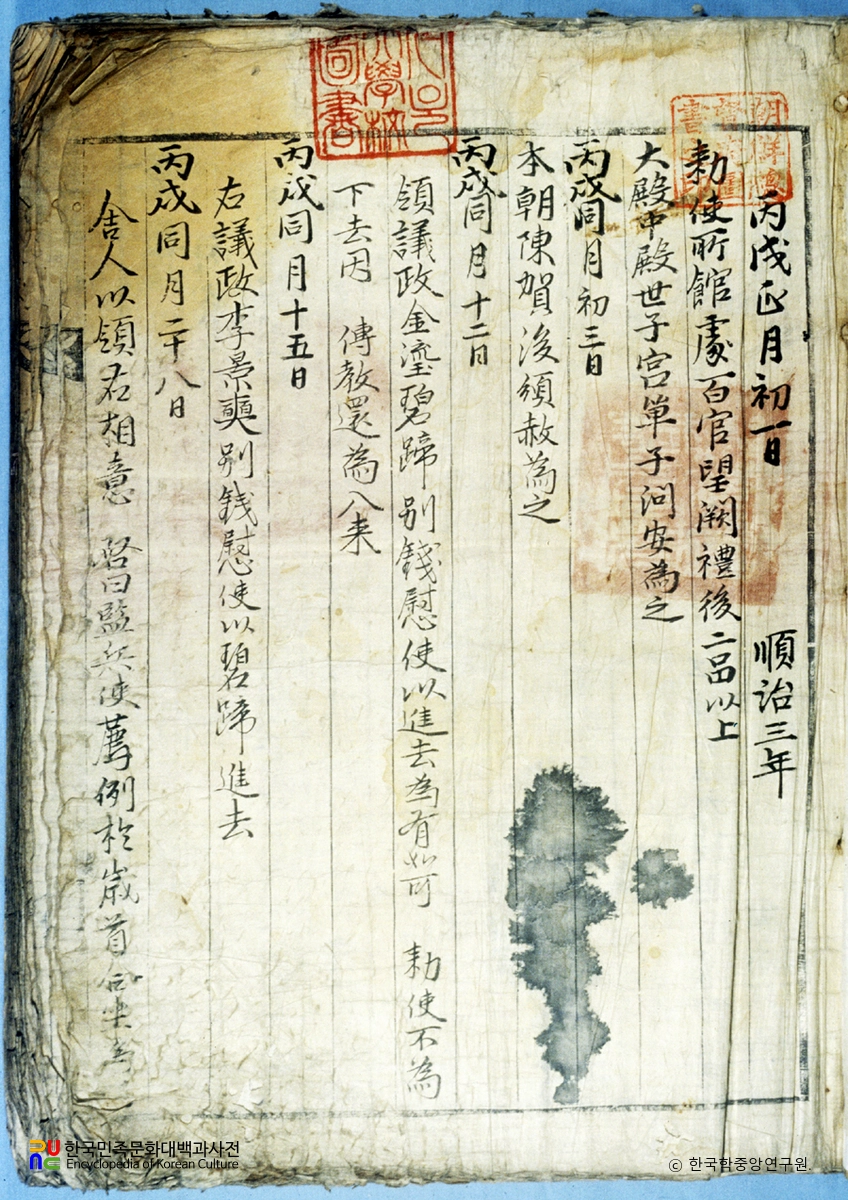 丙戌正月初一日 順治三年
勅使所館處百官望闕禮後二品以上
大殿中殿世子宮單子問安為之
丙戌同月初三日
本朝陳賀後頒赦為之
丙戌同月十二日
領議政金瑬碧蹄別餞慰使以進去為有如可 勅使不為
下去因 傳教還為入来
丙戌同月十五日
右議政李景奭別餞慰使以碧蹄進去
丙戌同月二十八日
舍人以領右相意 啓曰監兵使薦例於歲首
圖書
한국민족문화대백과사전
Encyclopedia of Korean Culture
ⓒ 한국학중앙연구원